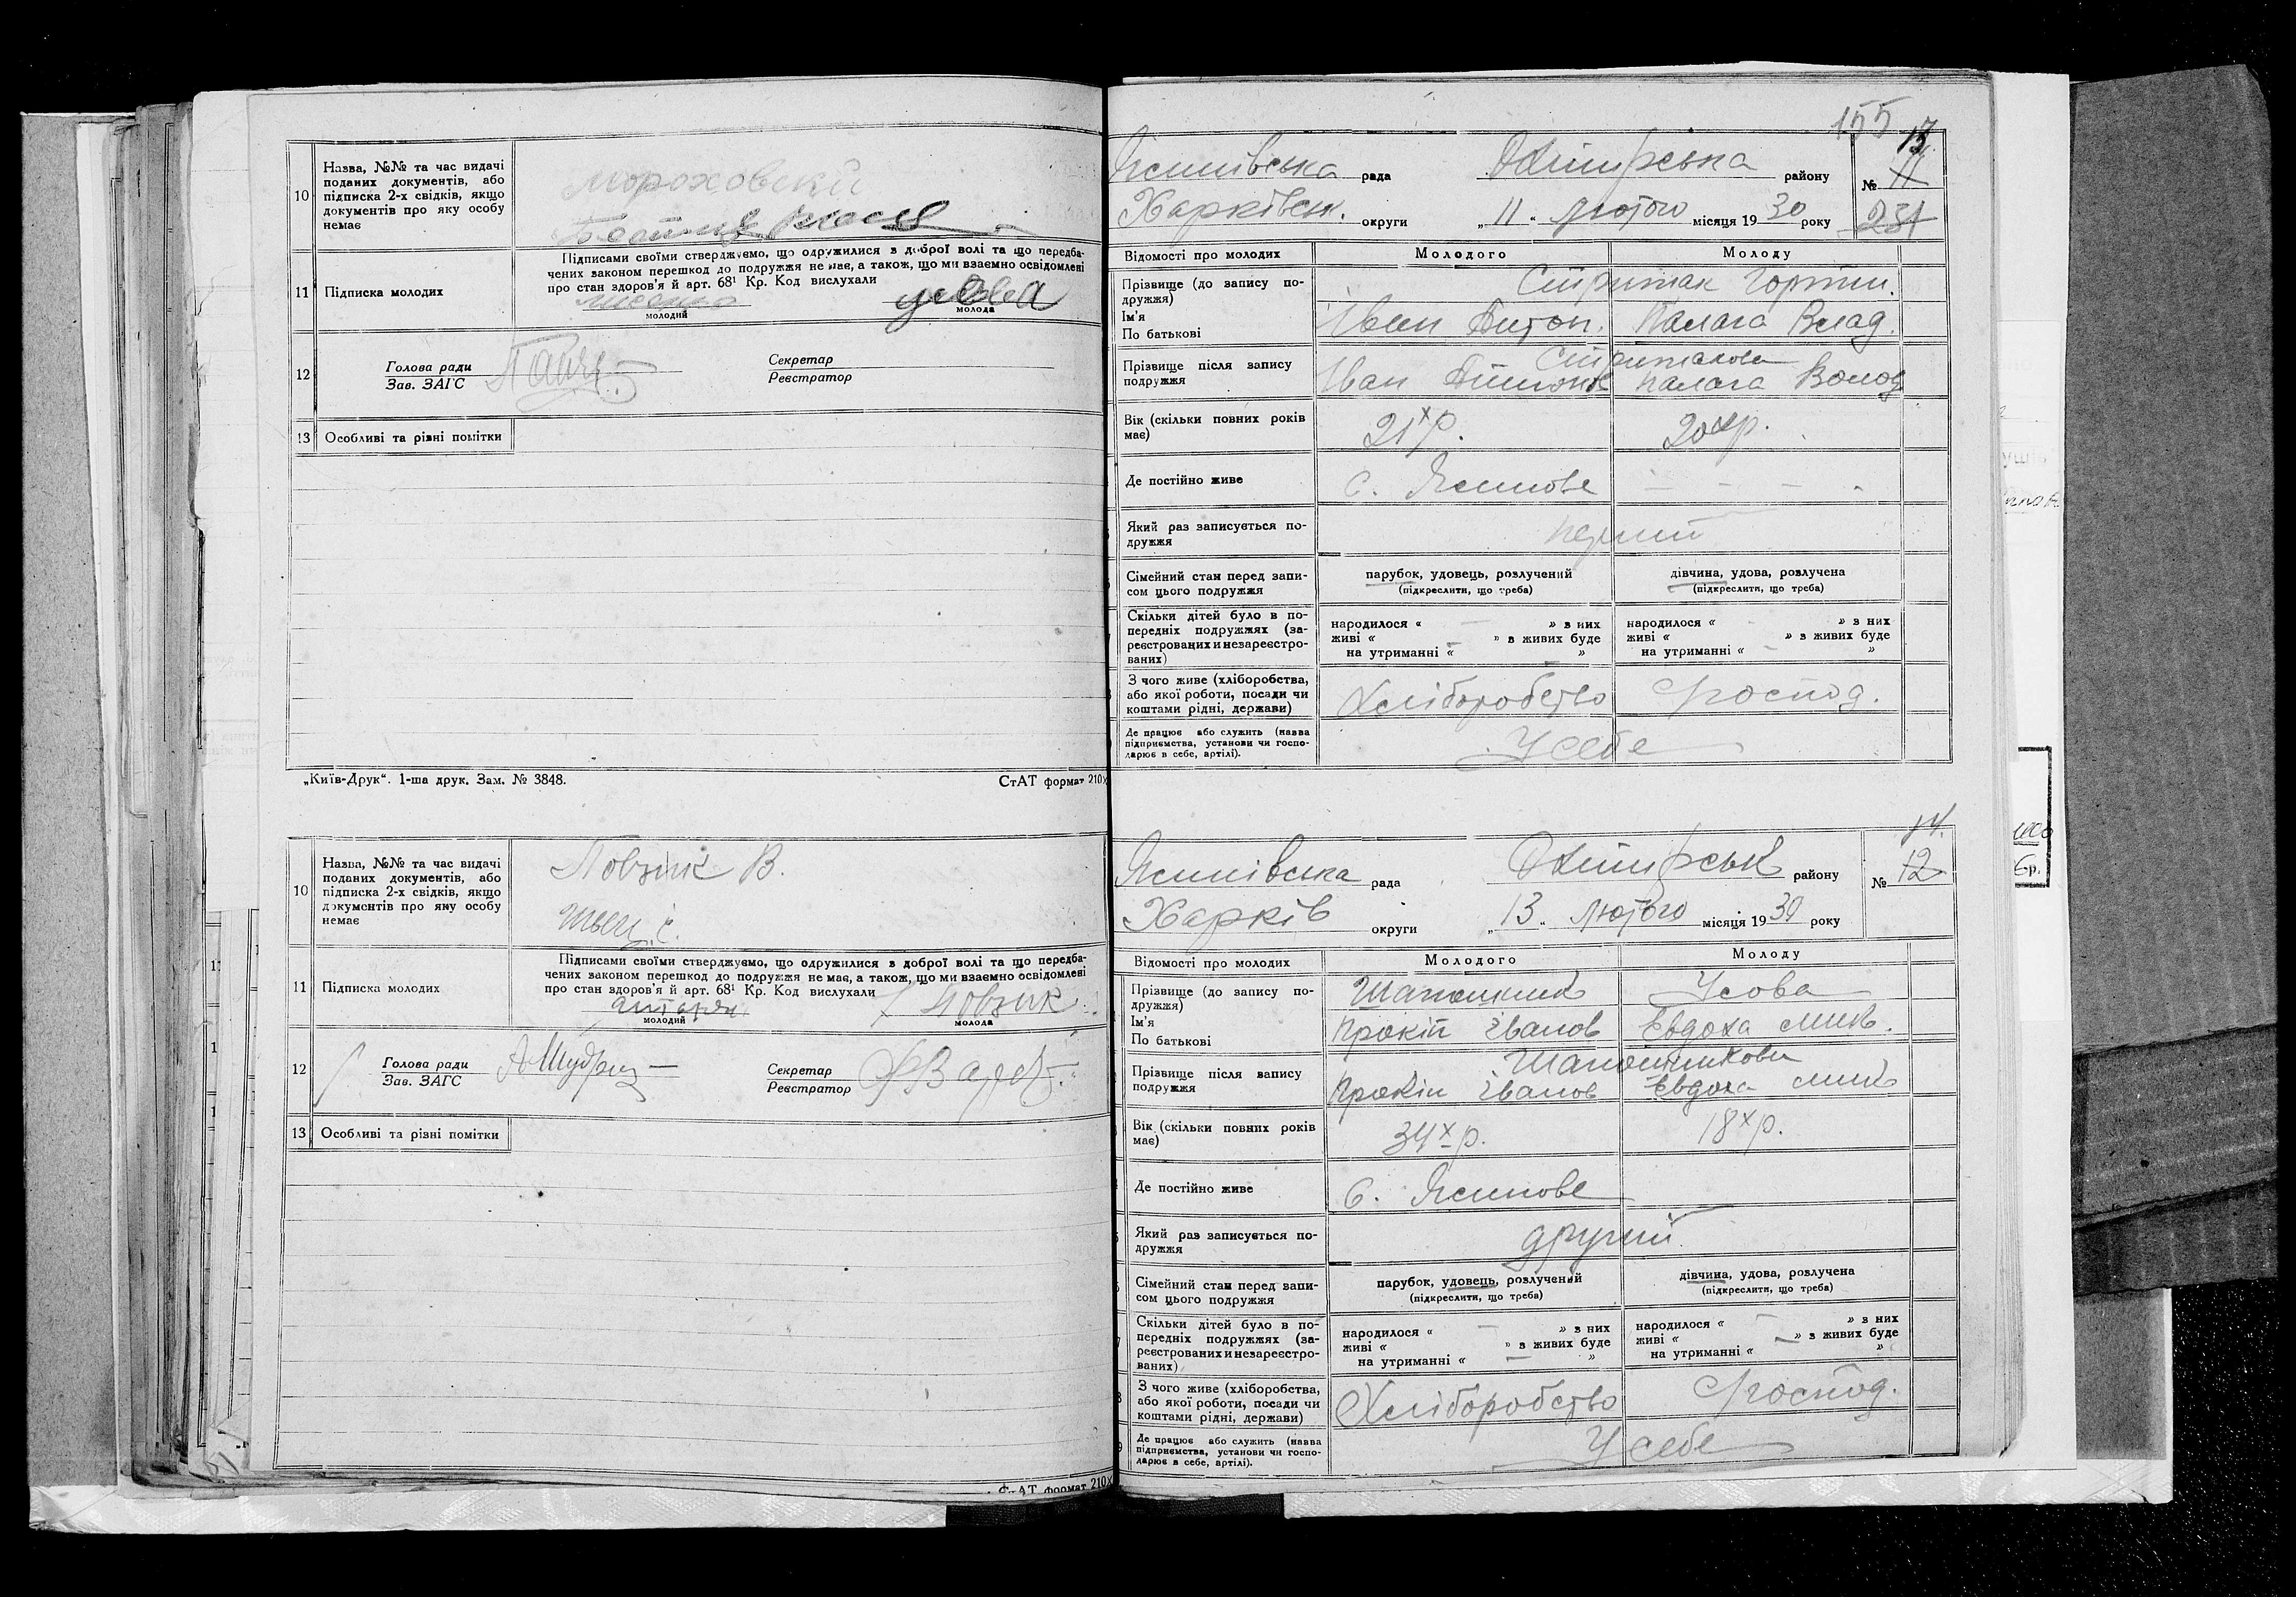 10
Назва, №№ та час видачі
поданих документів, або
підписка 2-х свідків, якщо
документів про яку особу
немає
Мороховский
11
Підписка молодих
Підписами своїми стверджуємо, що одружилися з доброї волі та що передба-
чених законом перешкод до подружжя не має, а також, що ми взаємно освідомлені
про стан здоров'я й арт. 68¹ Кр. Код вислухали
молодий
молода
12
Голова ради
Зав. ЗАГС
Секретар
Реєстратор
13
Особливі та різні помітки
„Київ-Друк“. 1-ша друк. Зам. № 3848.
СтАТ формат 210х
10
Назва, №№ та час видачі
поданих документів, або
підписка 2-х свідків, якщо
документів про яку особу
немає
Повзик В.
11
Підписка молодих
Підписами своїми стверджуємо, що одружилися з доброї волі та що передба-
чених законом перешкод до подружжя не має, а також, що ми взаємно освідомлені
про стан здоров'я й арт. 68¹ Кр. Код вислухали
Повзик
молодий
молода
12
Голова ради
Зав. ЗАГС
Секретар
Реєстратор
13
Особливі та різні помітки
СтАТ формат 210х
155
13
Ясенівська рада Охтирська району № 11
Харківськ. округи „11“ Лютого місяця 1930 року 231
Відомості про молодих
Молодого
Молоду
Прізвище (до запису по-
дружжя)
Ім'я
По батькові
Іван Антон.
Палага Влад.
Прізвище після запису
подружжя
Іван Антонов
Палага Волод
Вік (скільки повних років
має)
21х р.
20х р.
Де постійно живе
с. Ясенове
Який раз записується по-
дружжя
перший
Сімейний стан перед запи-
сом цього подружжя
парубок, удовець, розлучений
(підкреслити, що треба)
дівчина, удова, розлучена
(підкреслити, що треба)
Скільки дітей було в по-
передніх подружжях (за-
реєстрованих и незареєстро-
ваних)
народилося « — » з них
живі « — » з живих буде
на утриманні « — »
народилося « — » з них
живі « — » з живих буде
на утриманні « — »
З чого живе (хліборобства,
або якої роботи, посади чи
коштами рідні, держави)
Хліборобство
Господ.
Де працює або служить (назва
підприємства, установи чи госпо-
дарює в себе, артілі).
У себе
14.
Ясенівська рада Охтирськ району № 12
Харків округи „13“ Лютого місяця 1930 року
Відомості про молодих
Молодого
Молоду
Прізвище (до запису по-
дружжя)
Ім'я
По батькові
Усова
Прокіп Іванов
Євдоха Мик.
Прізвище після запису
подружжя
Шапошникови
Прокіп Іванов
Євдоха Мик
Вік (скільки повних років
має)
34х р.
18х р.
Де постійно живе
с. Ясенове
Який раз записується по-
дружжя
другий
Сімейний стан перед запи-
сом цього подружжя
парубок, удовець, розлучений
(підкреслити, що треба)
дівчина, удова, розлучена
(підкреслити, що треба)
Скільки дітей було в по-
передніх подружжях (за-
реєстрованих и незареєстро-
ваних)
народилося « — » з них
живі « » з живих буде
на утриманні « — »
народилося « — » з них
живі « — » з живих буде
на утриманні « »
З чого живе (хліборобства,
або якої роботи, посади чи
коштами рідні, держави)
Хліборобство
Господ.
Де працює або служить (назва
підприємства, установи чи госпо-
дарює в себе, артілі).
У себе